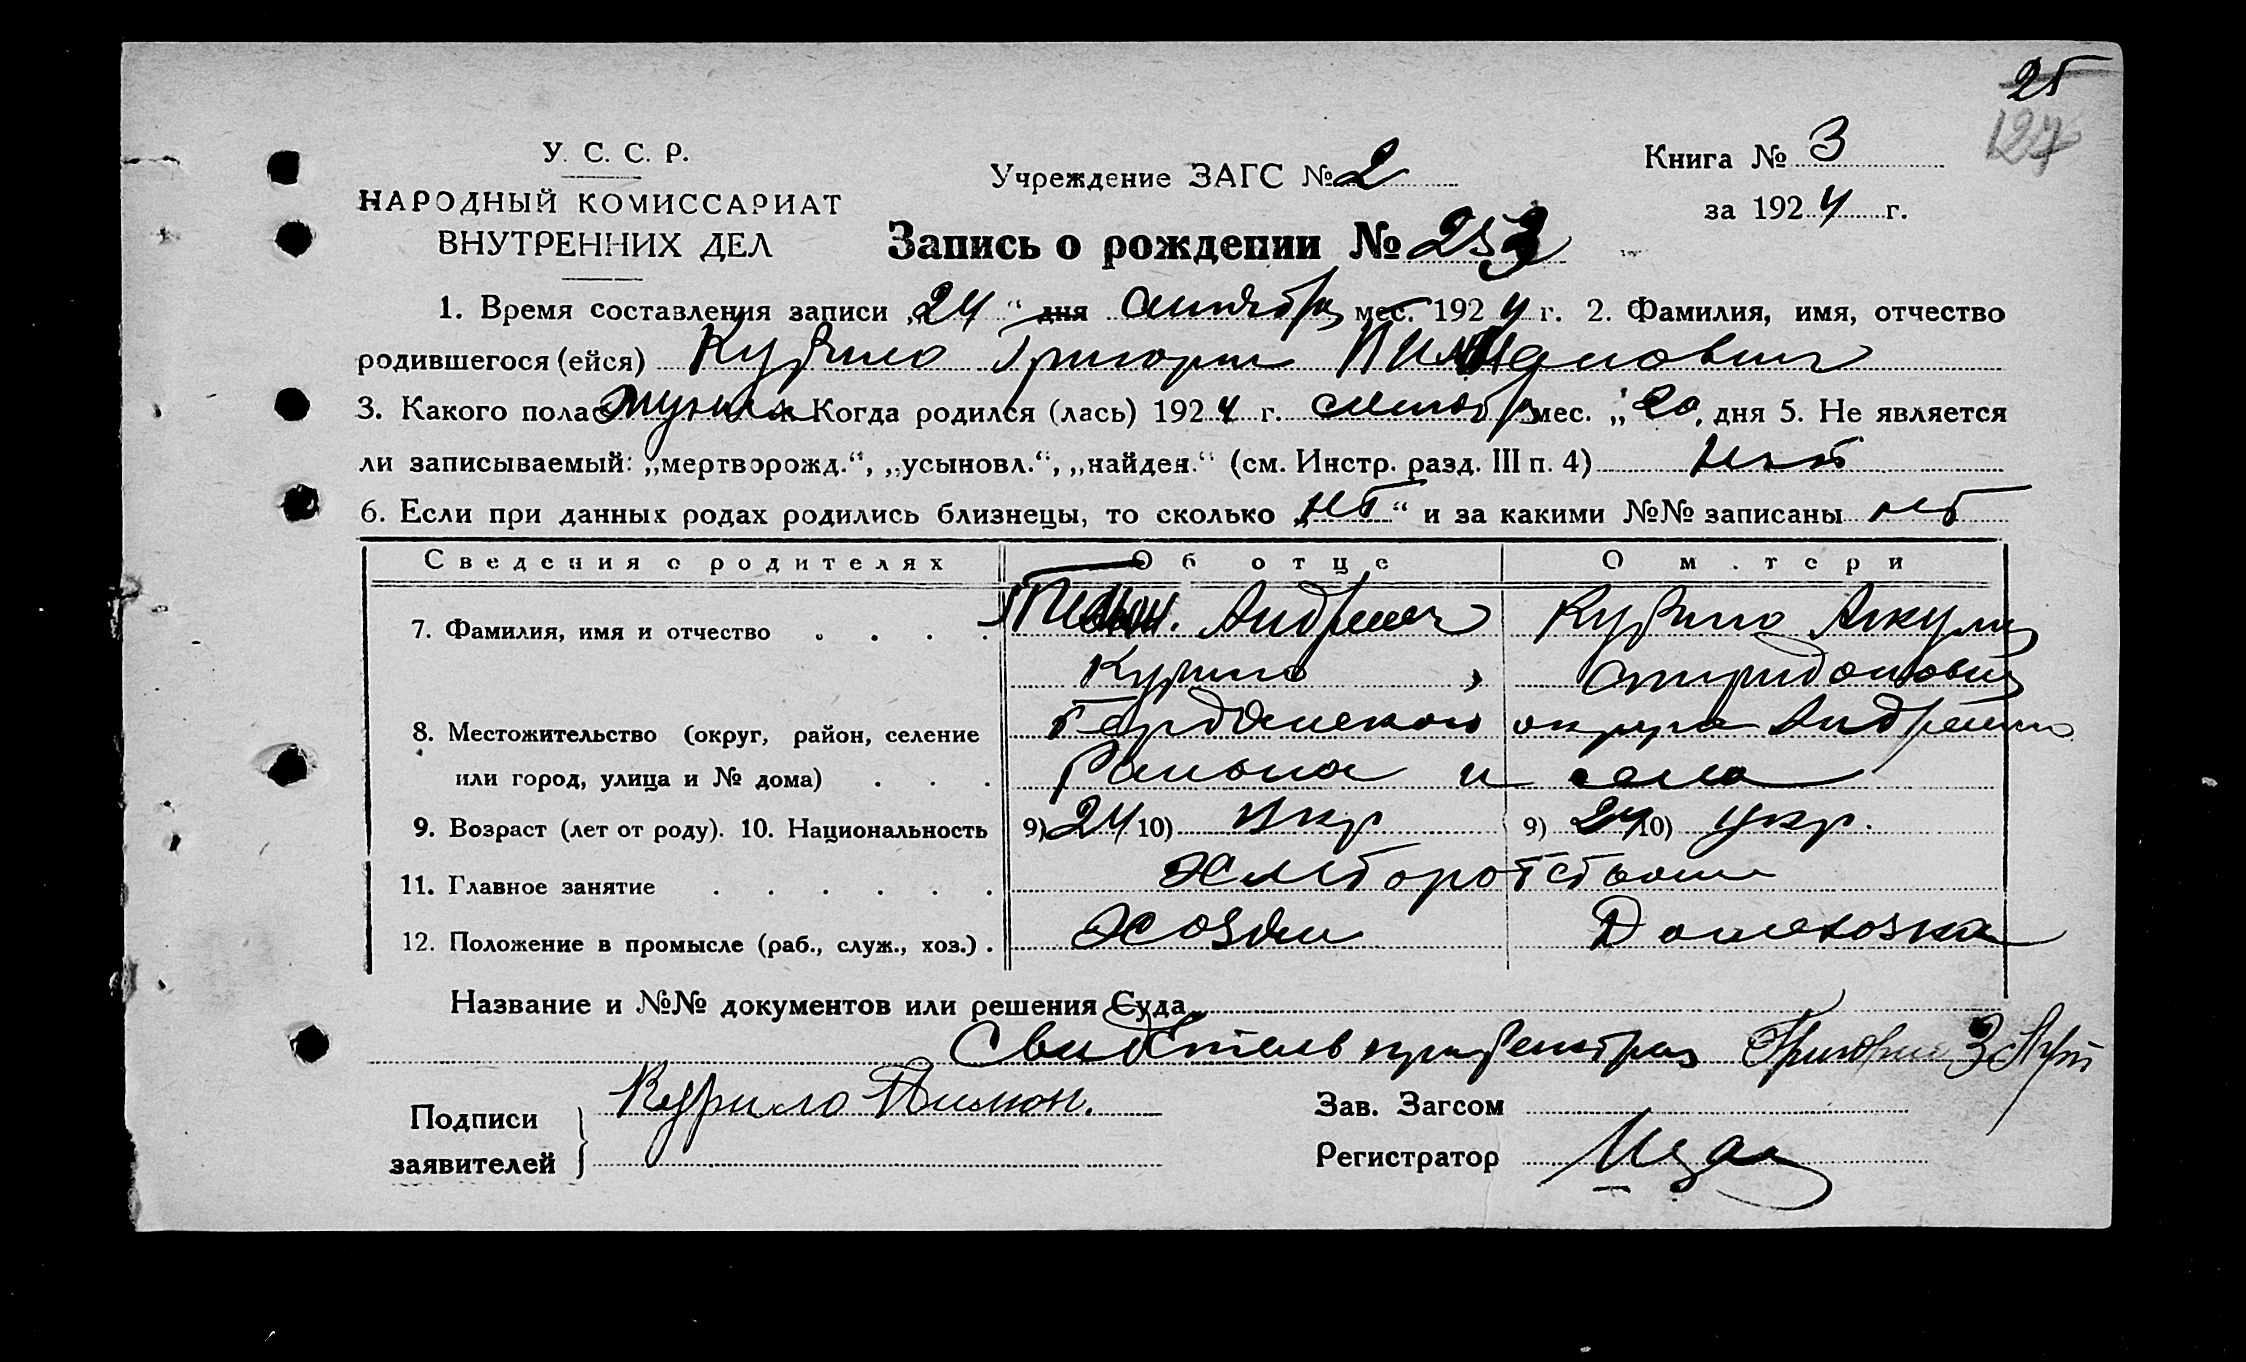 25
127
У. С. С. Р.
НАРОДНЫЙ КОМИССАРИАТ
ВНУТРЕННИХ ДЕЛ
Учреждение ЗАГС № 2
Книга № 3
за 1924 г.
Запись о рождении № 253
1. Время составления записи „24“ дня сентября мес. 1924 г. 2. Фамилия, имя, отчество
родившегося (ейся) Курило Григорий
3. Какого пола мужск 4. Когда родился (лась) 1924 г. сентябр мес. „20„ дня 5. Не является
ли записываемый: „мертворожд.“, „усыновл.“, „найден.“ (см. Инстр. разд. III п. 4) нет
6. Если при данных родах родились близнецы, то сколько „нет“ и за какими №№ записаны нет
Сведения о родителях Об отце О матери
7. Фамилия, имя и отчество Пимон. Андреевич Курило Акулина
Курило Спиридоновна
8. Местожительство (округ, район, селение Бердянского округа Андреевского
или город, улица и № дома) Района и села
9. Возраст (лет от роду). 10. Национальность 9) 24 10) Укр 9) 24 10) Укр.
11. Главное занятие
12. Положение в промысле (раб., служ., хоз.) Хозяин Домохозяйка
Название и №№ документов или решения Суда
Свидетель при
Подписи
заявителей
Курило Пимон.
Зав. Загсом
Регистратор